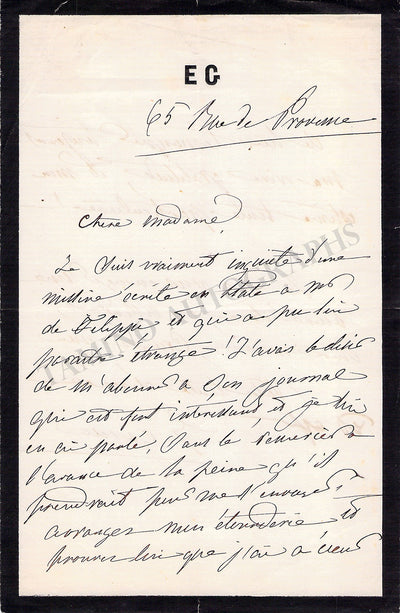 EG
65 Rue de Provence
Chere Madame,
Je suis vraiment inquiete d'une
missive écrite en hate a Mr
de Filippi et qui a pu lui
paraitre étrange! J'avais le désir
de m'abonner a Son journal
qui est fort intéressant, et je lui
en ai parlé, Sans le remercier à
l'avance de la peine qu'il
prendrait pour me l'envoyer
arranger mon étourderie et
prouver lui que j'ai a coeur
TAMINO AUTOGRAPHS